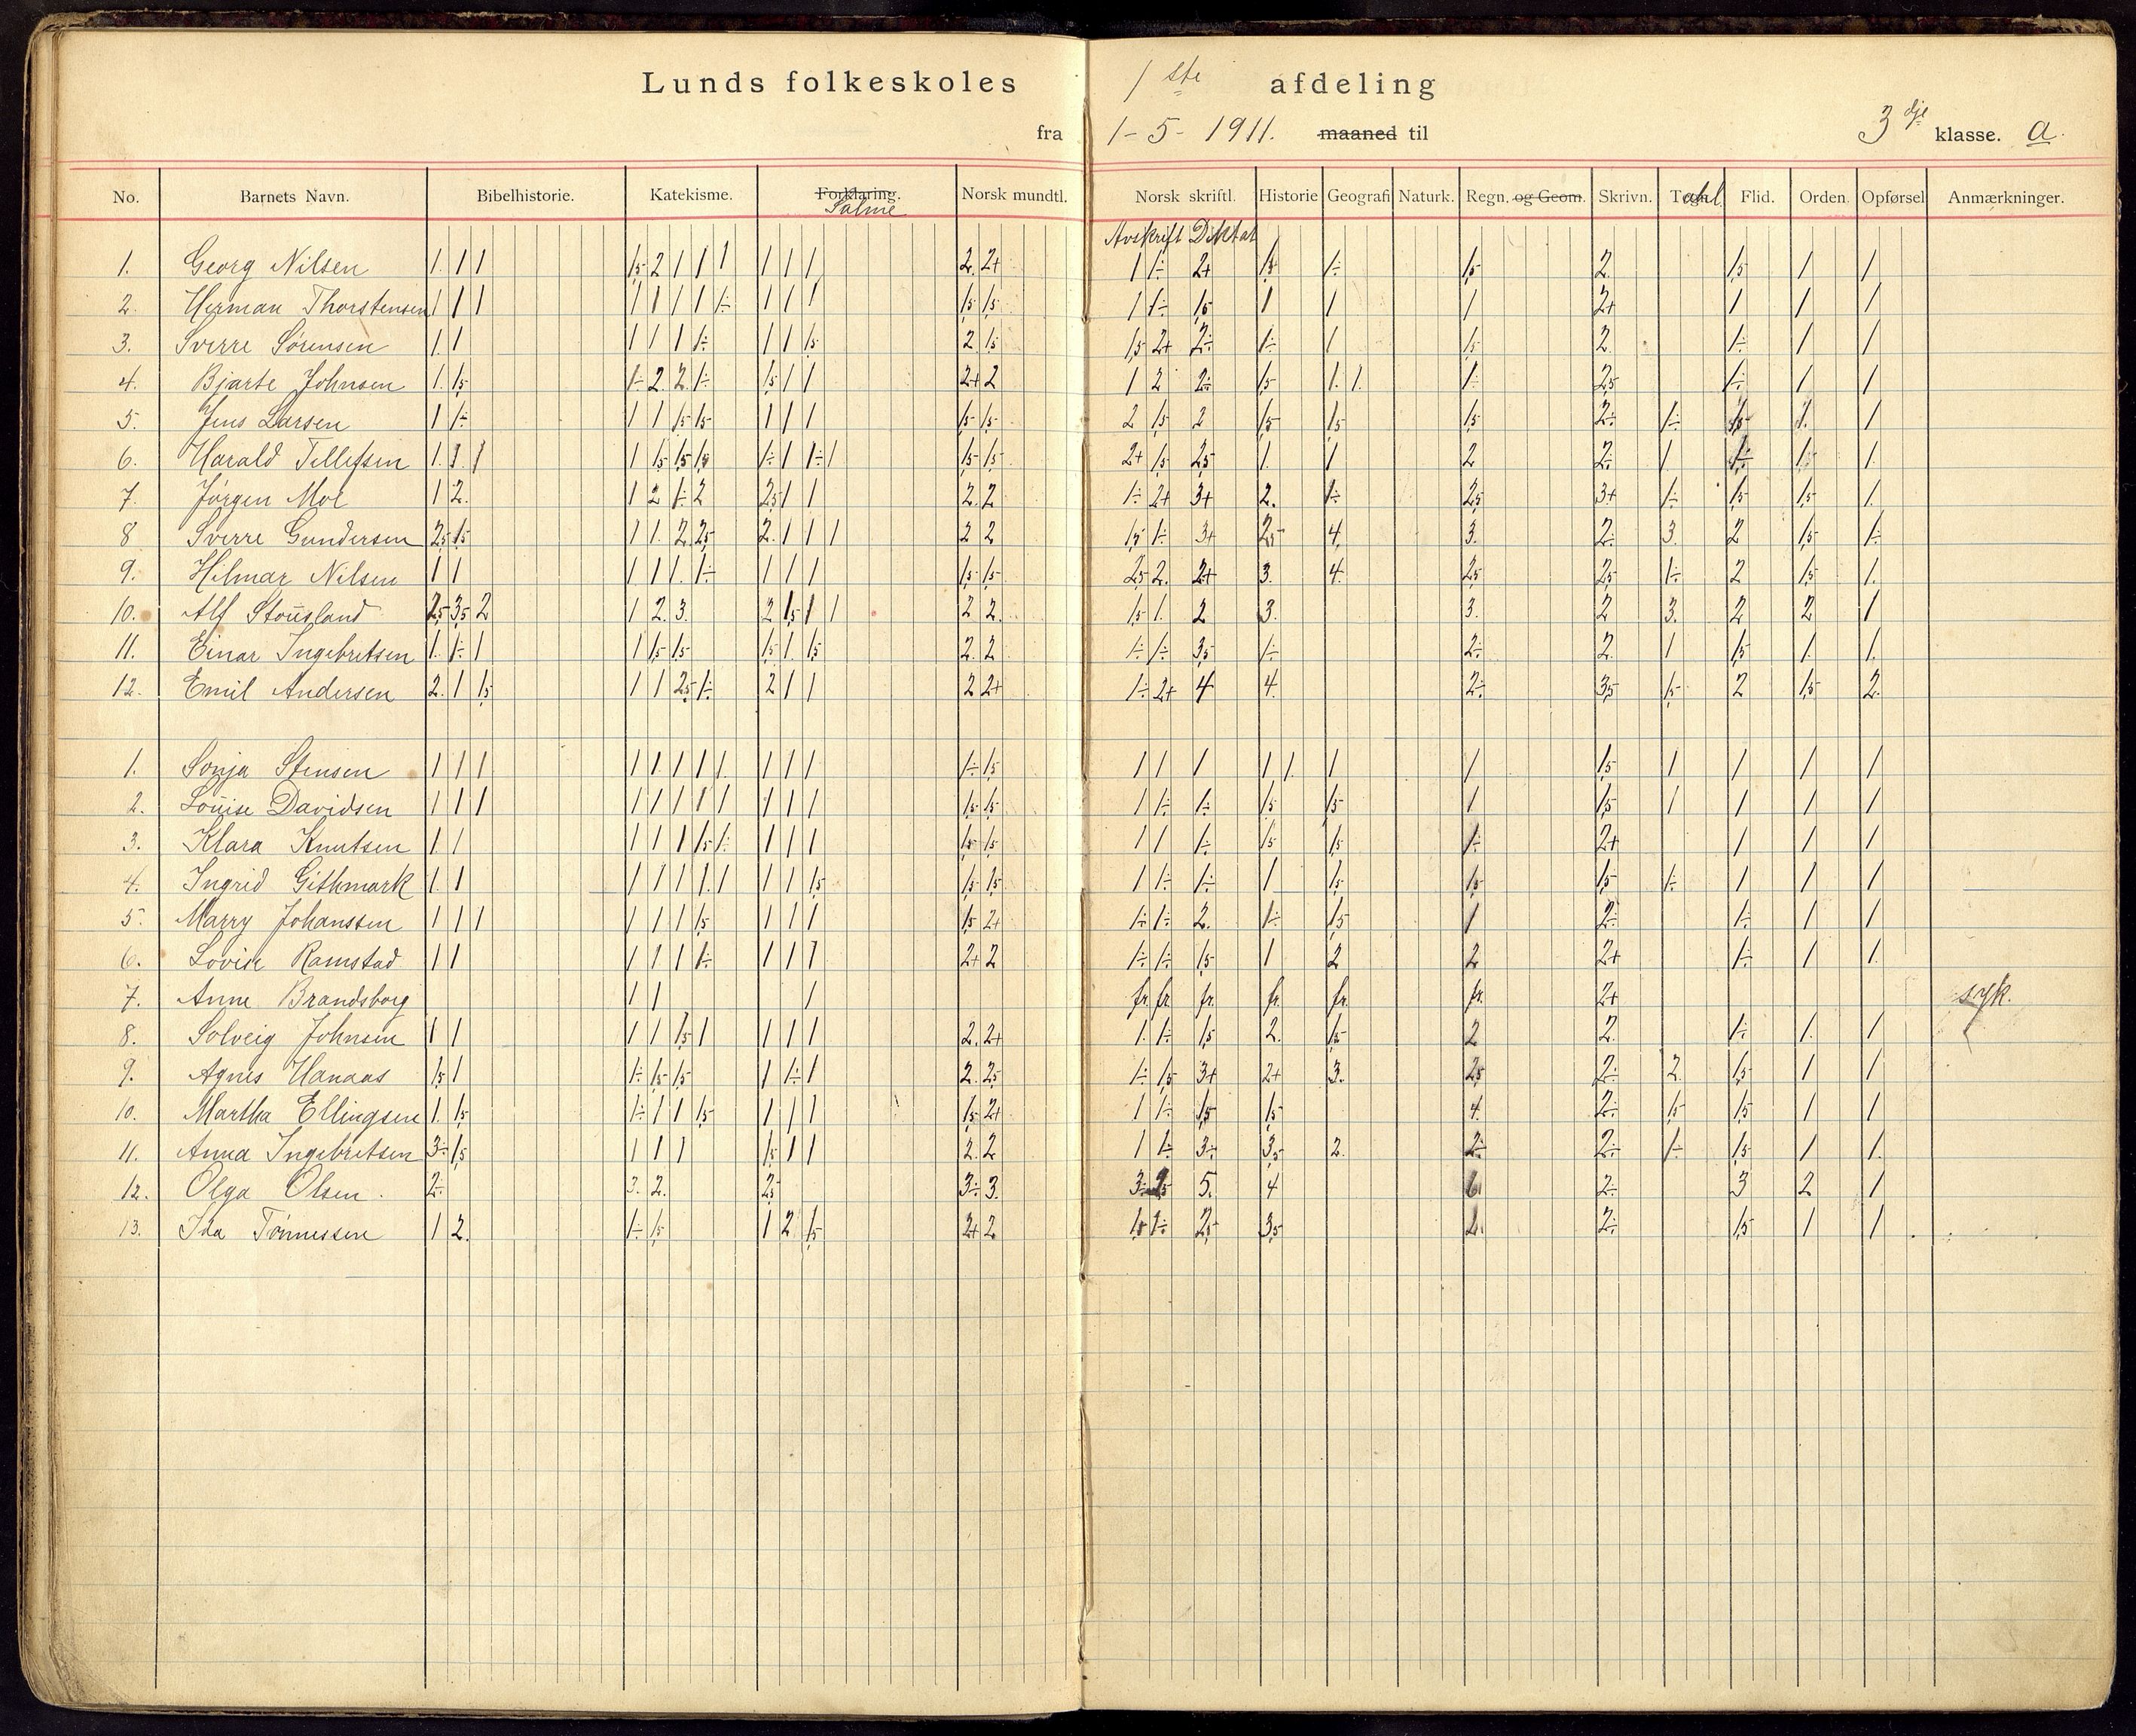 Lunds folkeskoles 1 ste afdeling
fra 1-5-1911. maaned til 3 dje klasse. a.
No. Barnets Navn. Bibelhistorie. Katekisme. Forklaring. Norsk mundtl. Norsk skriftl. Historie Geografi Naturk. Regn. og Geom. Skrivn. Flid. Orden. Opførsel Anmærkninger.
Salme
Avskrift Diktat
1. Georg Nilsen 1. 1 1 15 2 1 1 1 1 1 1 2. 2+ 1 1÷ 2+ 15 1÷ 15 2. 15 1 1
2. Herman Thorstensen 1 1 1 1 1 1 1 1÷ 1 1 1 15 15 1 1÷ 15 1 1 1 2+ 1 1 1
3. Sverre Sørensen 1. 1 1 1 1 1÷ 1 1 15 2. 15 15 2+ 2÷ 1÷ 1 15 2. 1÷ 1 1
4. Bjarte Johnsen 1. 15 1÷ 2. 2. 1÷ 15 1 1 2+ 2 1 2 2÷ 15 1. 1. 1÷ 25 1÷ 1 1
5. Jens Larsen 1 1÷ 1 1 15 15 1 1 1 15 15 2 15 2 15 15 15 2÷ 1÷ 15 1. 1
6. Harald Tellefsen 1. 1. 1 1 15 15 15 1÷ 1 1÷ 1 15 15 2+ 15 25 1. 1 2 2÷ 1. 1÷ 15 1.
7. Jørgen Moe 1 2. 1 2 1÷ 2 25 1 1 2. 2 1÷ 2+ 3+ 2. 1÷ 25 3+ 1÷ 15 15 1.
8 Sverre Gundersen 25 15 1 1. 2. 25 2. 1 1 1 2 2 15 1÷ 3+ 25 4. 3. 2÷ 3. 2 15 1÷
9. Hilmar Nilsen 1 1 1 1 1. 1÷ 1 1 1 15 15 25 2. 2+ 3. 4. 25 25 1÷ 2 15 1.
10. Alf Stousland 25 35 2 1 2. 3. 2 15 1 1 2 2. 15 1. 2 3. 3. 2 3. 2 2 1
11. Einar Ingebretsen 1. 1÷ 1 1 15 15 15 1. 15 2. 2 1÷ 1÷ 35 1÷ 2÷ 2. 1 15 1. 1.
12. Emil Andersen 2. 1 15 1 1 25 1÷ 2 1 1 2 2+ 1÷ 2+ 4 4. 2÷ 35 15 2 15 2.
1. Sonja Stensen 1 1 1 1 1. 1 1 1. 1 1 1 1÷ 15 1 1 1 1 1. 1 1 15 1 1 1 1
2. Louise Davidsen 1 1 1 1 1 1 1 1 1 1 1 15 15 1 1÷ 1÷ 15 15 1 15 1 1 1 1
3. Klara Knutsen 1. 1 1 1 1 15 1÷ 1 1 1 15 15 1 1 1÷ 15 15 1÷ 2+ 1 1 1
4. Ingrid Githmark 1. 1 1 1 1 1. 1 1 1 15 15 15 1 1÷ 1÷ 1 15 15 15 1÷ 1 1 1
5. Marry Johanssen 1 1 1 1 1 1 15 1 1 1 15 2+ 1÷ 1÷ 2. 1÷ 15 1 2÷ 1÷ 1 1
6. Lovise Ramstad 1 1 1 1 1 1÷ 1 1 1 2+ 2 1÷ 1÷ 15 1 2 2 2+ 1÷ 1 1.
7. Anne Brandsborg 1 1 1 fr. fr. fr. fr. fr. fr. 2+ syk.
8. Solveig Johnsen 1 1 1 1 15 1 1 1 1 2. 2+ 1. 1÷ 15 2. 15 2 2. 1÷ 1. 1
9. Agnes Hanaas 15 1 1÷ 15 15 1 1÷ 1 2. 25 1÷ 15 3+ 2+ 3. 25 2÷ 2. 15 1 1
10. Martha Ellingsen 1. 15 1÷ 1 1 15 1 1 1 15 2+ 1 1÷ 15 15 4. 2÷ 15 15 1 1
11. Anna Ingebretsen 3÷ 15 1 1 1 15 1 1 2. 2 1 1÷ 3÷ 35 2. 2÷ 2÷ 1÷ 15 1 1.
12. Olga Olsen. 2÷ 3. 2. 25 3÷ 3. 3÷ 5. 4 6. 2÷ 3 2 1
13. Ida Tønnessen 1 2. 1÷ 15 1 2 15 2+ 2 15 1÷ 25 35 2. 2÷ 15 1 1